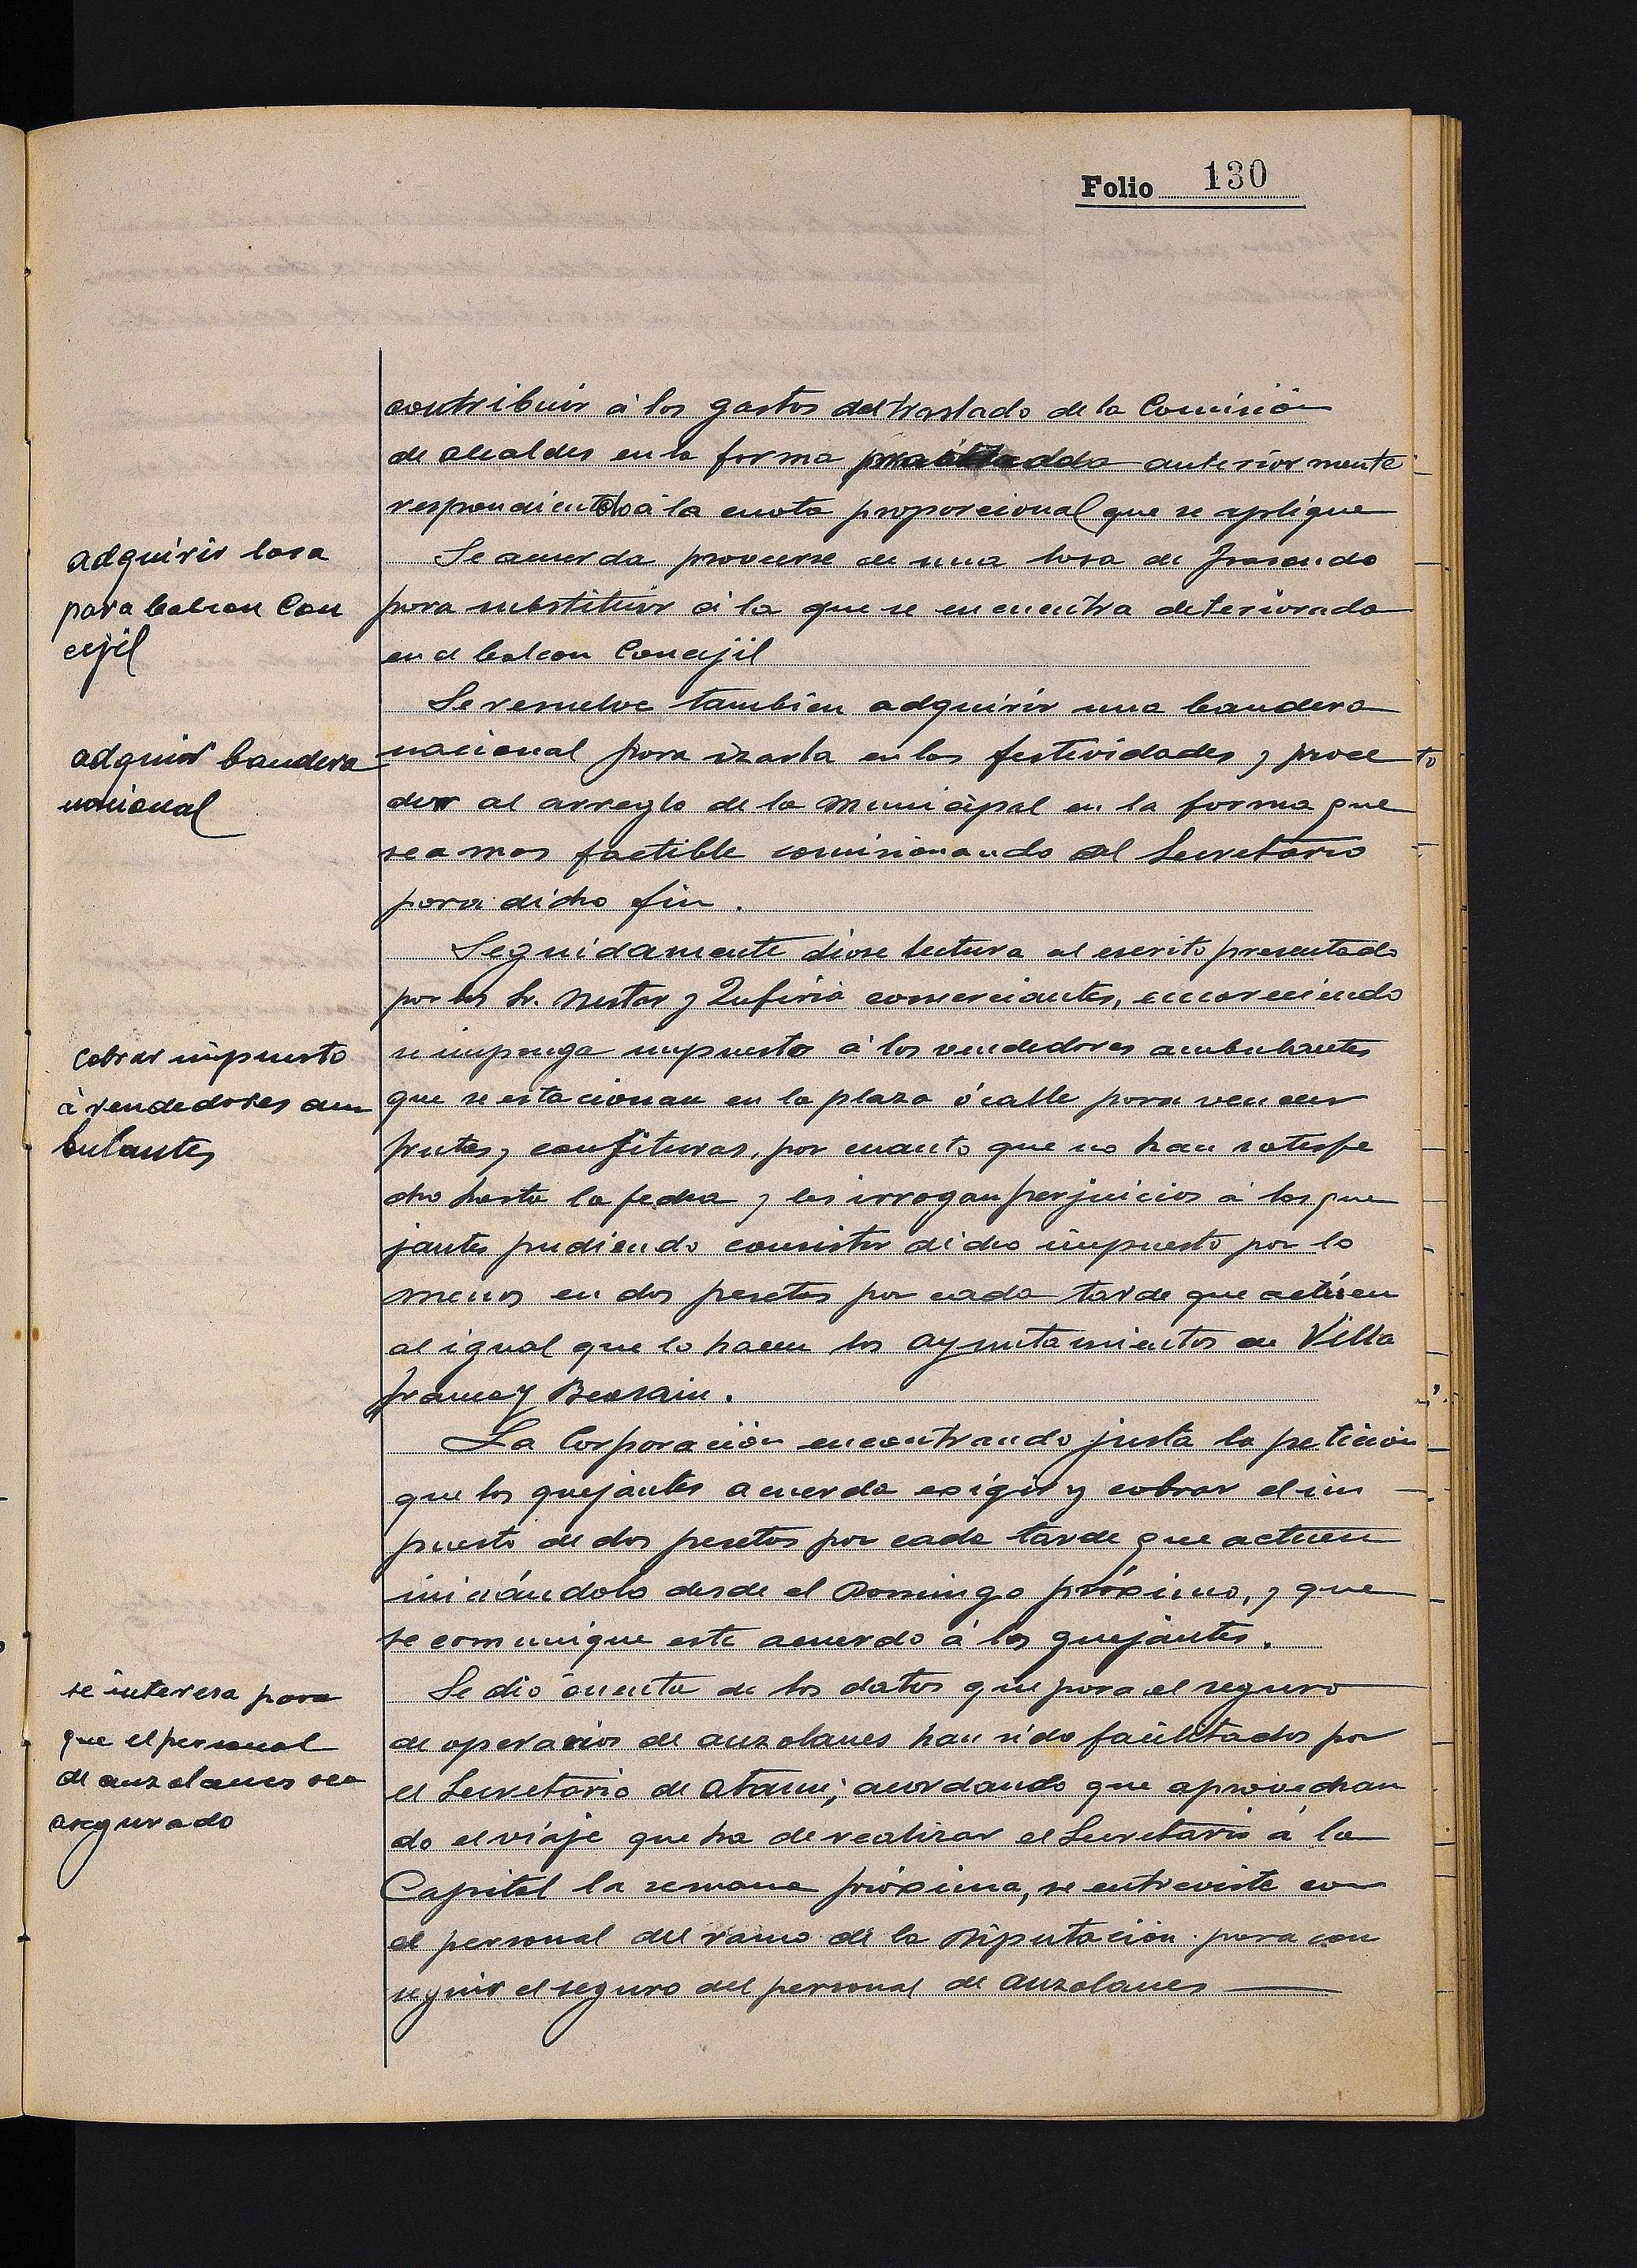 Folio 130
contribuir á los gastos del traslado de la Comisión
de alcaldes en la forma anteriormente
respondiendo á la cuota proporcional que se aplique
adquirir losa
para balcon Con
cejil
Se acuerda proveerse de una losa de
para substituir á la que se encuentra deteriorada
en el balcon Concejil
adquirir bandera
nacional
Se resuelve tambien adquirir una bandera
nacional para izarla en las festividades y proce
der al arreglo de la Municipal en la forma que
sea mas factible comisionando al Secretario
para dicho fin.
cobrar impuesto
á vendedores am
bulantes
Seguidamente diose lectura al escrito presentado
por los Sr. Nestor y comerciantes, encareciendo
se imponga impuesto á los vendedores ambulantes
que se estacionan en la plaza ó calle para vender
frutas y confituras, por cuanto que no han satisfe
cho hasta la fecha y les irrogan perjuicios á los que
jantes pudiendo consistir dicho impuesto por lo
menos en dos pesetas por cada tarde que actúen
al igual que lo hacen los ayuntamientos de Villa
franca y Beasain.
La Corporación encontrando justa la peticion
que los quejantes acuerda exigir y cobrar el im
puesto de dos pesetas por cada tarde que actuen
iniciándolo desde el Domingo próximo, y que
se comunique este acuerdo á los quejantes.
se interesa para
que el personal
de auzolanes sea
asegurado
Se dió cuenta de los datos que para el seguro
de operarios de auzolanes han sido facilitados por
el Secretario de Ataun; acordando que aprovechan
do el viaje que ha de realizar el Secretario á la
Capital la semana próxima, se entreviste con
el personal del ramo de la Diputación para con
seguir el seguro del personal de auzolanes